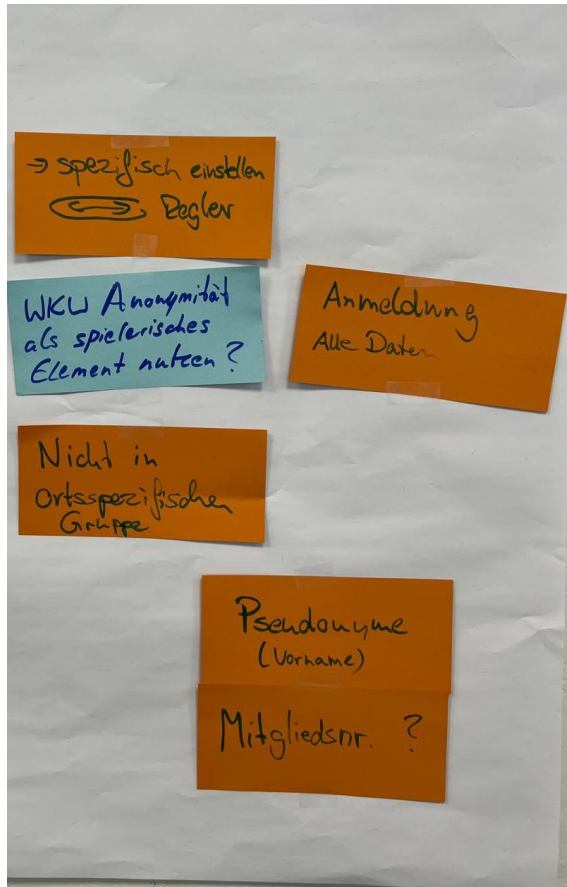 → spezifisch einstellen
Regler
WKW Anonymität
als spielerisches
Element nutzen?
Anmeldung
Alle Daten
Nicht in
ortsspezifischen
Gruppe
Pseudonyme
(Vorname)
Mitgliedsnr. ?